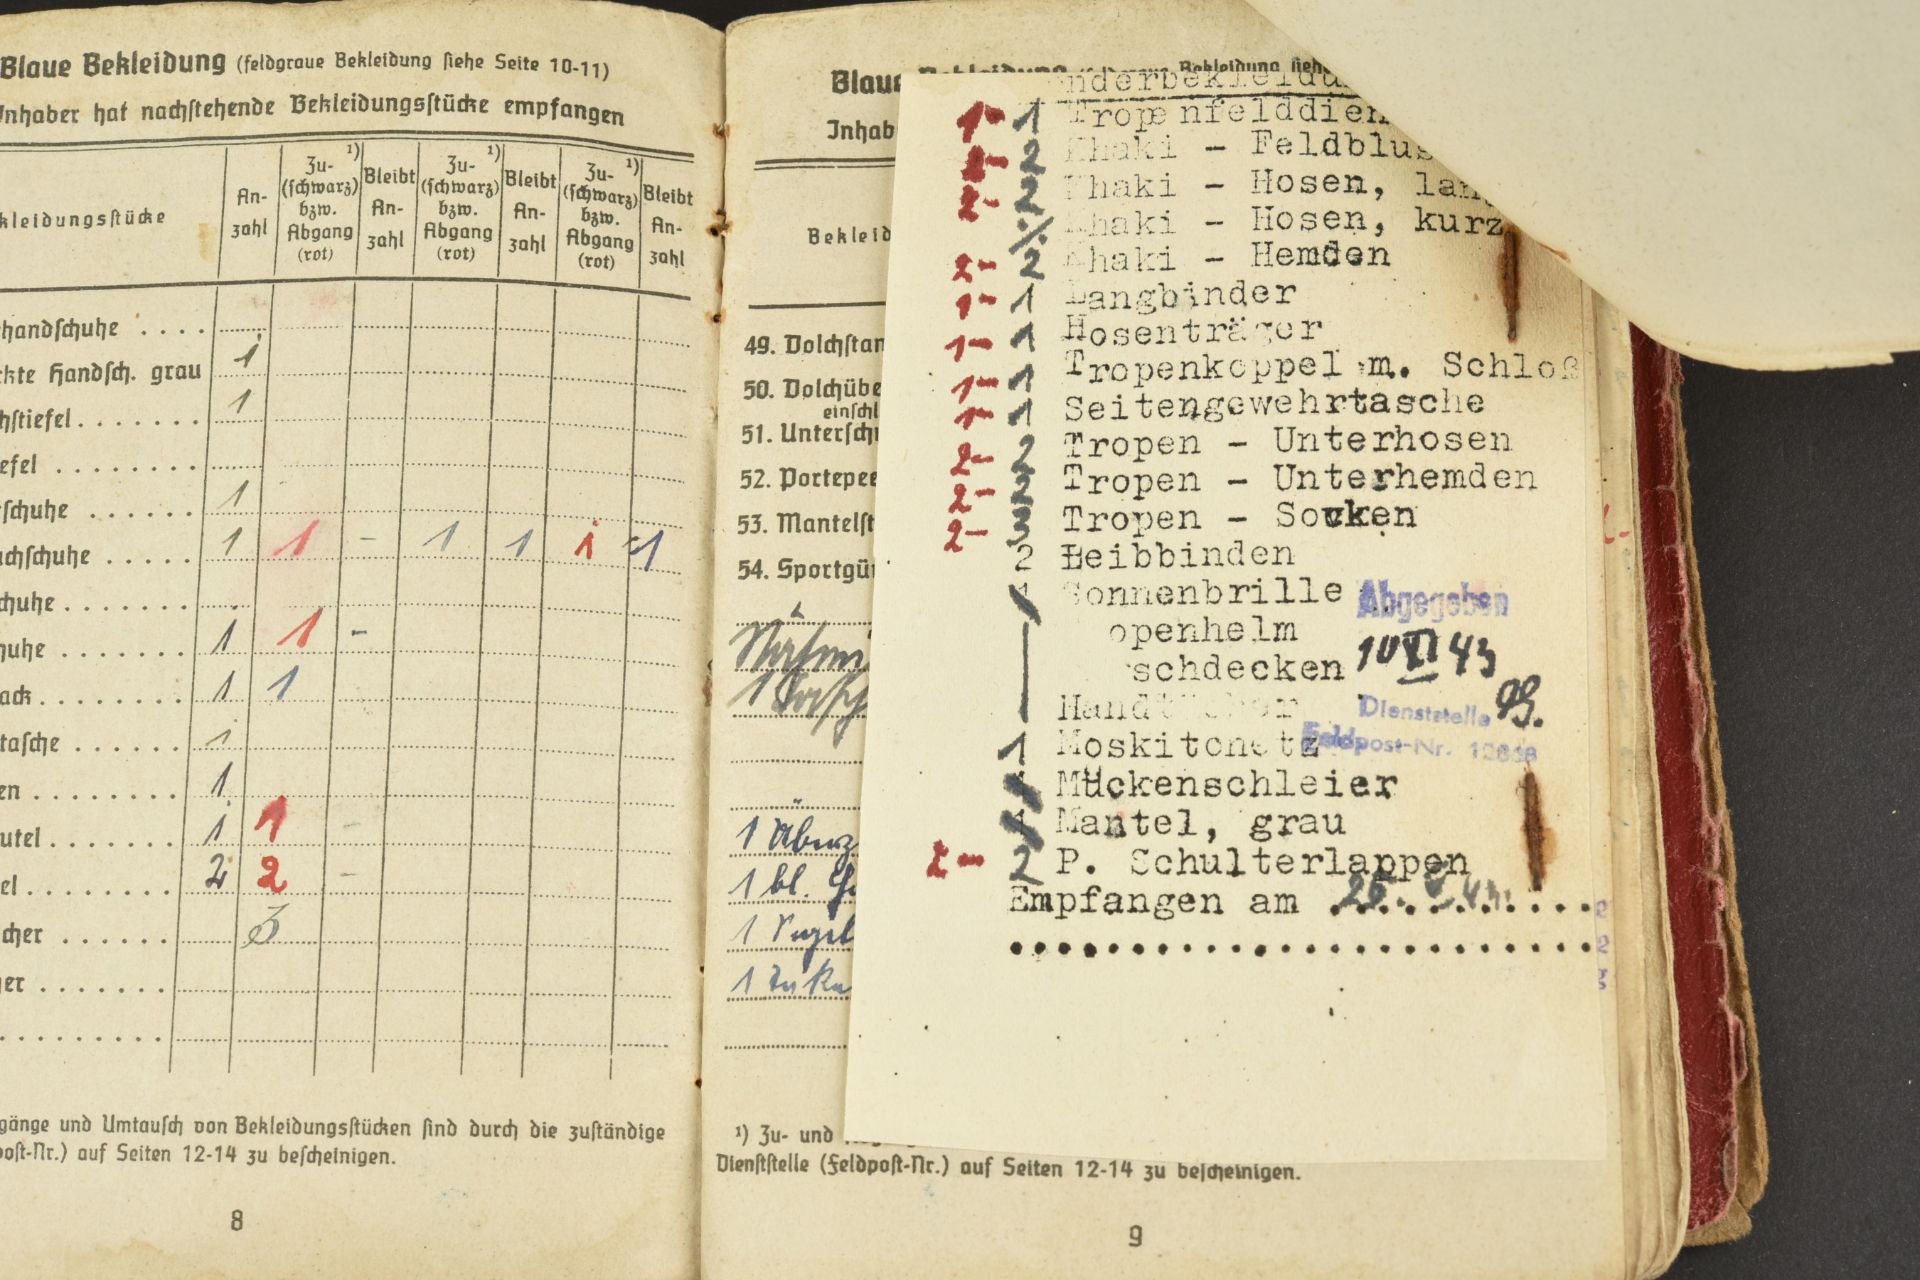 Blaue Bekleidung (feldgraue Bekleidung siehe Seite 10-11)
Inhaber hat nachstehende Bekleidungsstücke empfangen
kleidungsstücke
An-
zahl
Zu- ¹)
(schwarz)
bzw.
Abgang
(rot)
Bleibt
An-
zahl
Zu- ¹)
(schwarz)
bzw.
Abgang
(rot)
Bleibt
An-
zahl
Zu- ¹)
(schwarz)
bzw.
Abgang
(rot)
Bleibt
An-
zahl
handschuhe . . . .
kte Handsch. grau 1
hstiefel . . . . . . . 1
efel . . . . . . . .
schuhe . . . . . . 1
chschuhe . . . . . 1 1 - 1 1 1 -1
chuhe . . . . . . .
huhe . . . . . . . 1 1 -
ack . . . . . . . . 1 1
tasche . . . . . . 1
en . . . . . . . . 1
utel . . . . . . . 1 1 -
el . . . . . . . . 2 2 -
cher . . . . . . 3
er . . . . . . .
gänge und Umtausch von Bekleidungsstücken sind durch die zuständige
post-Nr.) auf Seiten 12-14 zu bescheinigen.
8
Blaue Bekleidung Bekleidung sieh
Inhab
Bekleid
49. Dolchstan
50. Dolchübe
einschl
51. Unterschu
52. Portepee
53. Mantelst
54. Sportgür
1
1 bl.
1
1
nderbekleidu
1- 1 Tropenfelddien
2 Khaki - Feldblus
2- 2 Khaki - Hosen, lan
% Khaki - Hosen, kurz
2- 2 Khaki - Hemden
1- 1 Langbinder
1- 1 Hosenträger
1- 1 Tropenkoppel m. Schloß
1- 1 Seitengewehrtasche
2- 2 Tropen - Unterhosen
2- 2 Tropen - Unterhemden
2- 3 Tropen - Socken
2 Leibbinden
Sonnenbrille
openhelm
schdecken
Handtücher
1 Moskitonetz
Mückenschleier
Mantel, grau
2- 2 P. Schulterlappen
Empfangen am 25. V. 43.
Abgegeben
10 VI 43
Dienststelle
Feldpost-Nr.
¹) Zu- und
Dienststelle (Feldpost-Nr.) auf Seiten 12-14 zu bescheinigen.
9